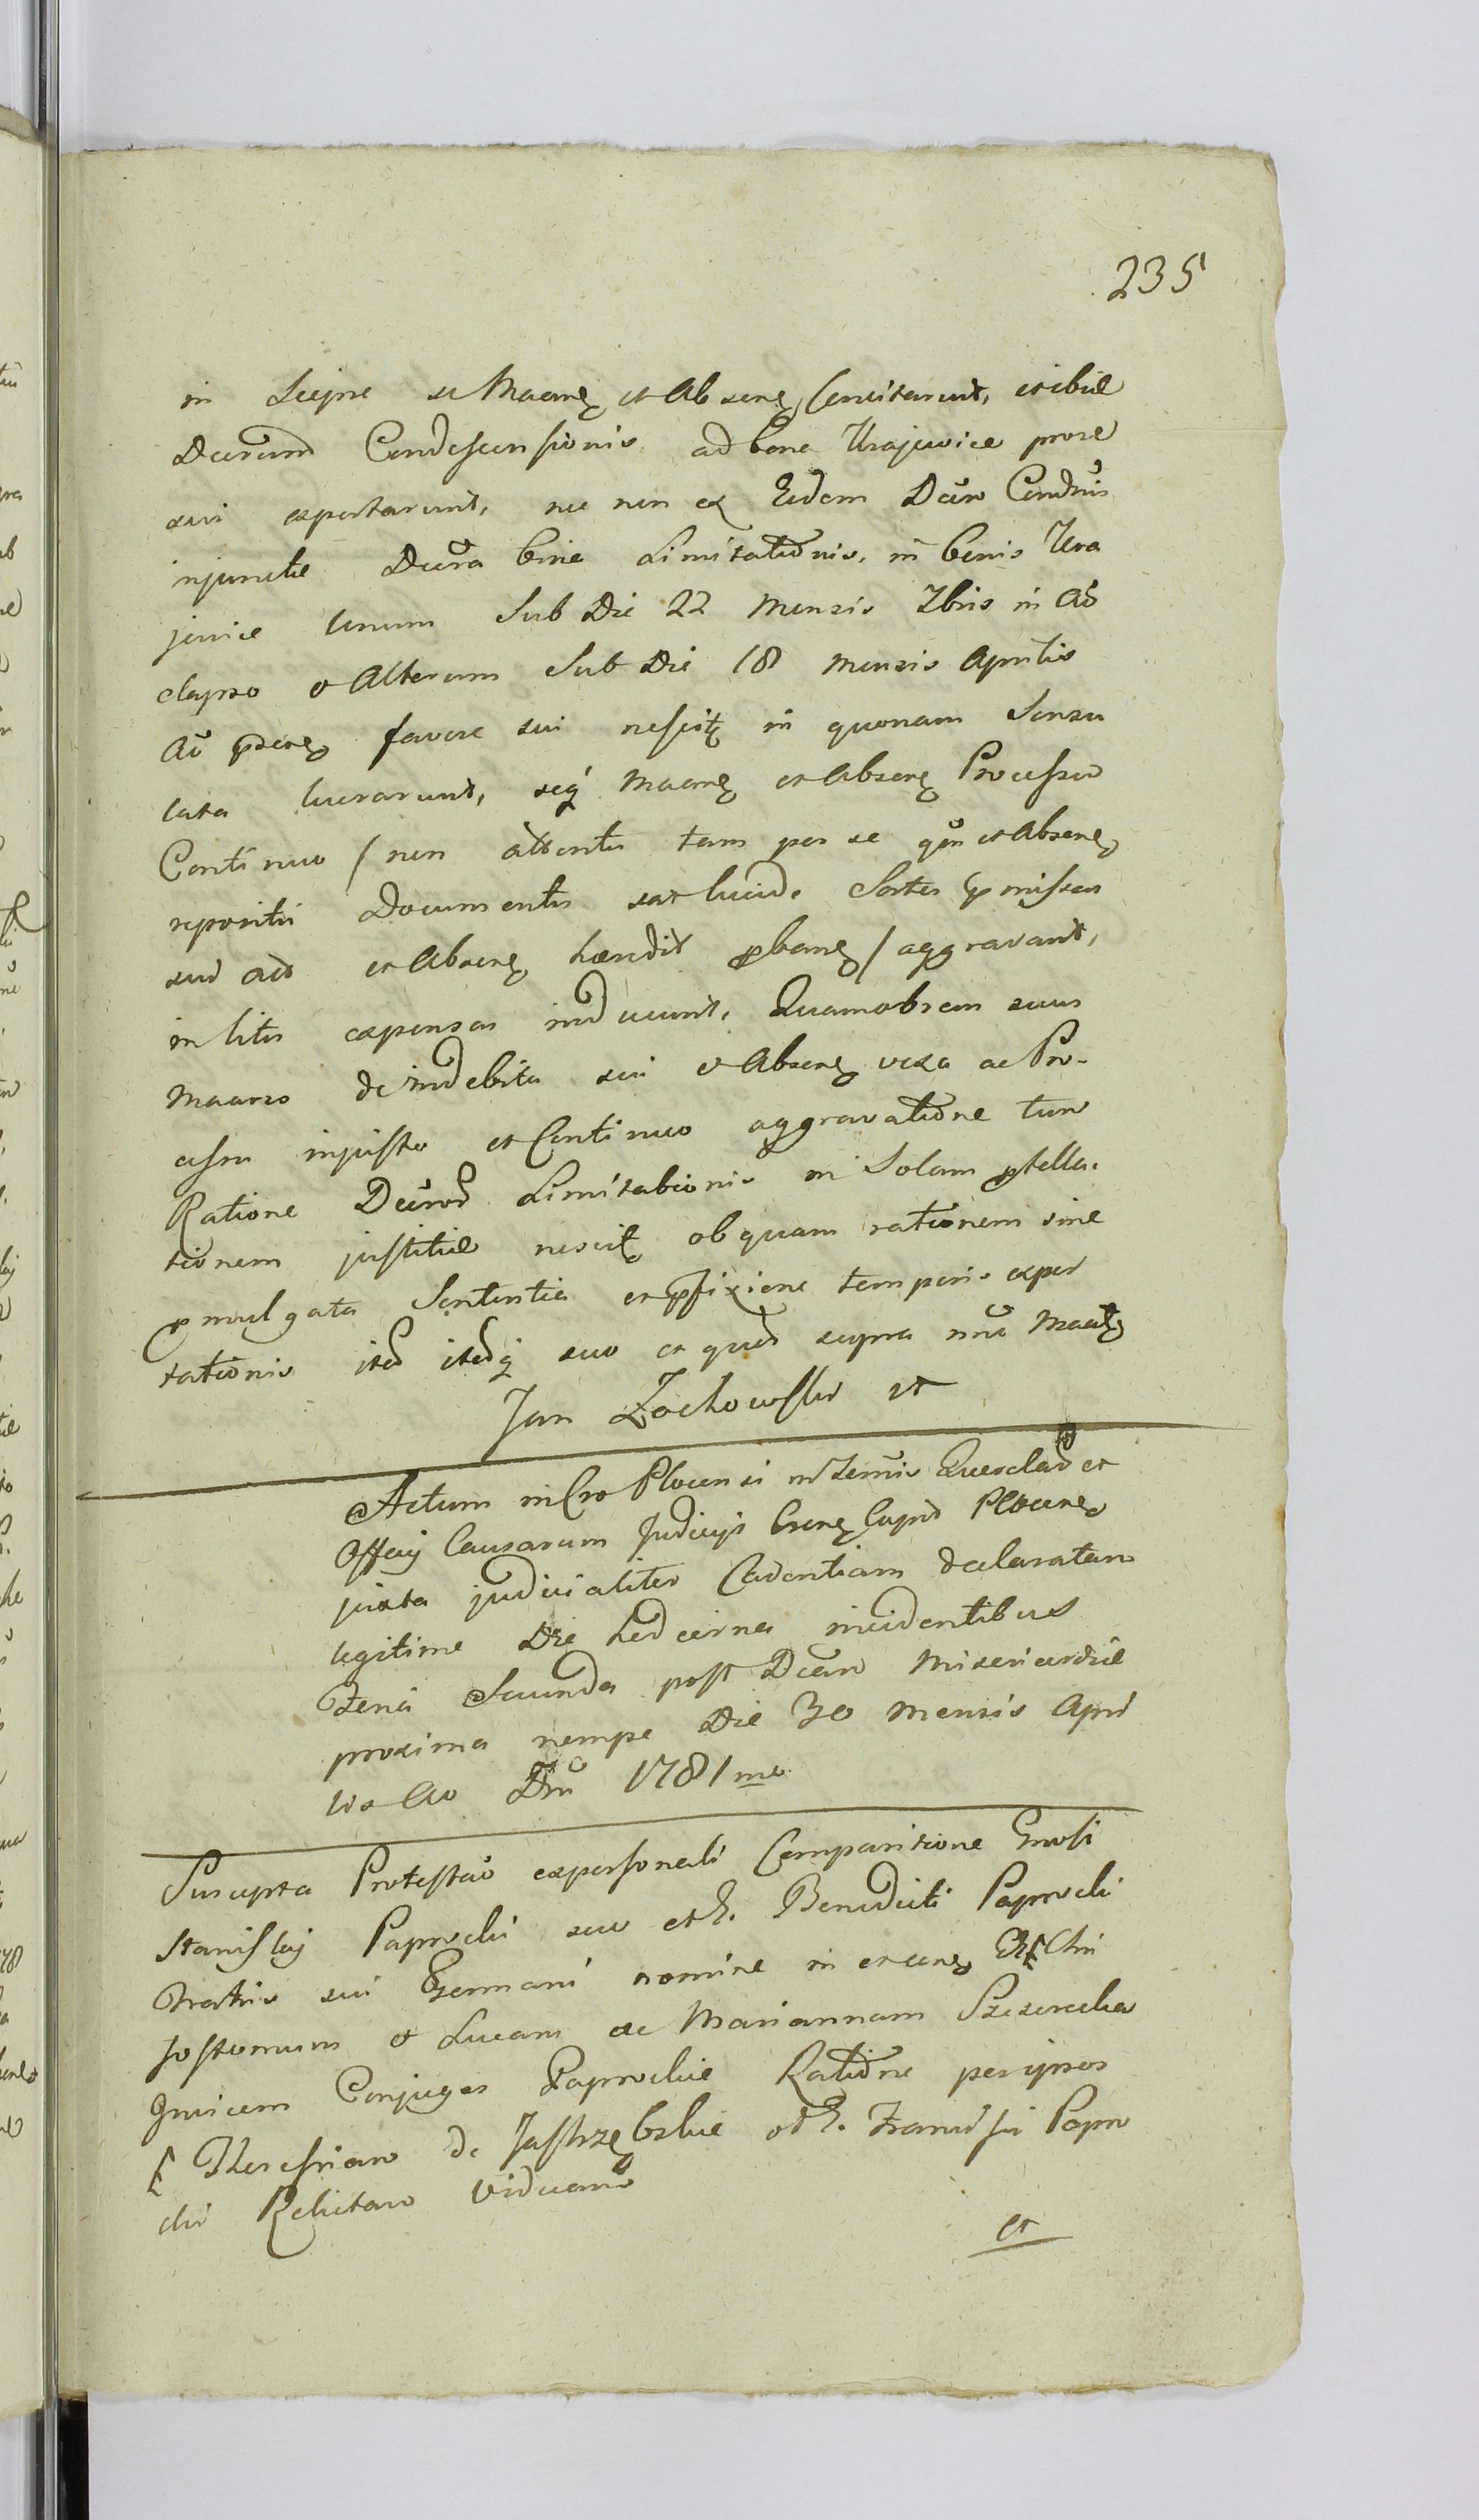 235
in Lejpre se Maarē et Absenē Convitarunt, et ibid
Decretum Condescensionis ad bona Krajewice prose
sui exportarunt, nec non ex Eodem Decro Condnis
injunctæ Decra bina Limitationis, in bonis Kra
jewice unum Sub Die 22 Mensis 7bris in Ao
elapso et Alterum Sub Die 18 Mensis Aprilis
Ao prsenē favore sui nescitē in quonam Sensu
lata lucrarunt, seq Maarē et Absenē Processu
Continuo / non attentis tam per se qm et Absenē
repositis Documentis sat lucide Sortes pmissas
sud ad et Absenē haeredit pbanē / aggravant,
in litis expensas inducunt, Quamobrem suus
Maarso de indebita sui et Absenē vexa ac Pro-
cessu injusto et Continuo aggravatione tum
Ratione Decror Limitationis in Solam ptella-
tionem justitiæ nescitē ob quam rationem sine
pmulgata Sententia et pfixione temporis expor
tationis ited itedq suo et quo supra nne Maatē
Jan Żochowski et
Actum in Cro Plocensi in Termis Querelar et
Officij Causarum Judicijs Crenē Capit Plocenē
juxta judicialiter Cadentiam declaratam
legitime Die hodierna incidentibus
Feria Secunda post Dcam Misericordiæ
proxima nempe Die 30 Mensis Apri
lis Ao Dni 1781mo
Suscepta Protestao ex personali Comparitione Gnosi
Stanislaj Paprocki suo et G. Benedicti Paprocki
Fratris sui Germani nomine in et conē GG Chri
sostomum et Lucam ac Mariannam Szczerecka
Invicem Conjuges Paprockie Ratione per ipsos
Theresiam de Jastrzębskie olG. Francisci Papro
cki Relictam Viduam
et